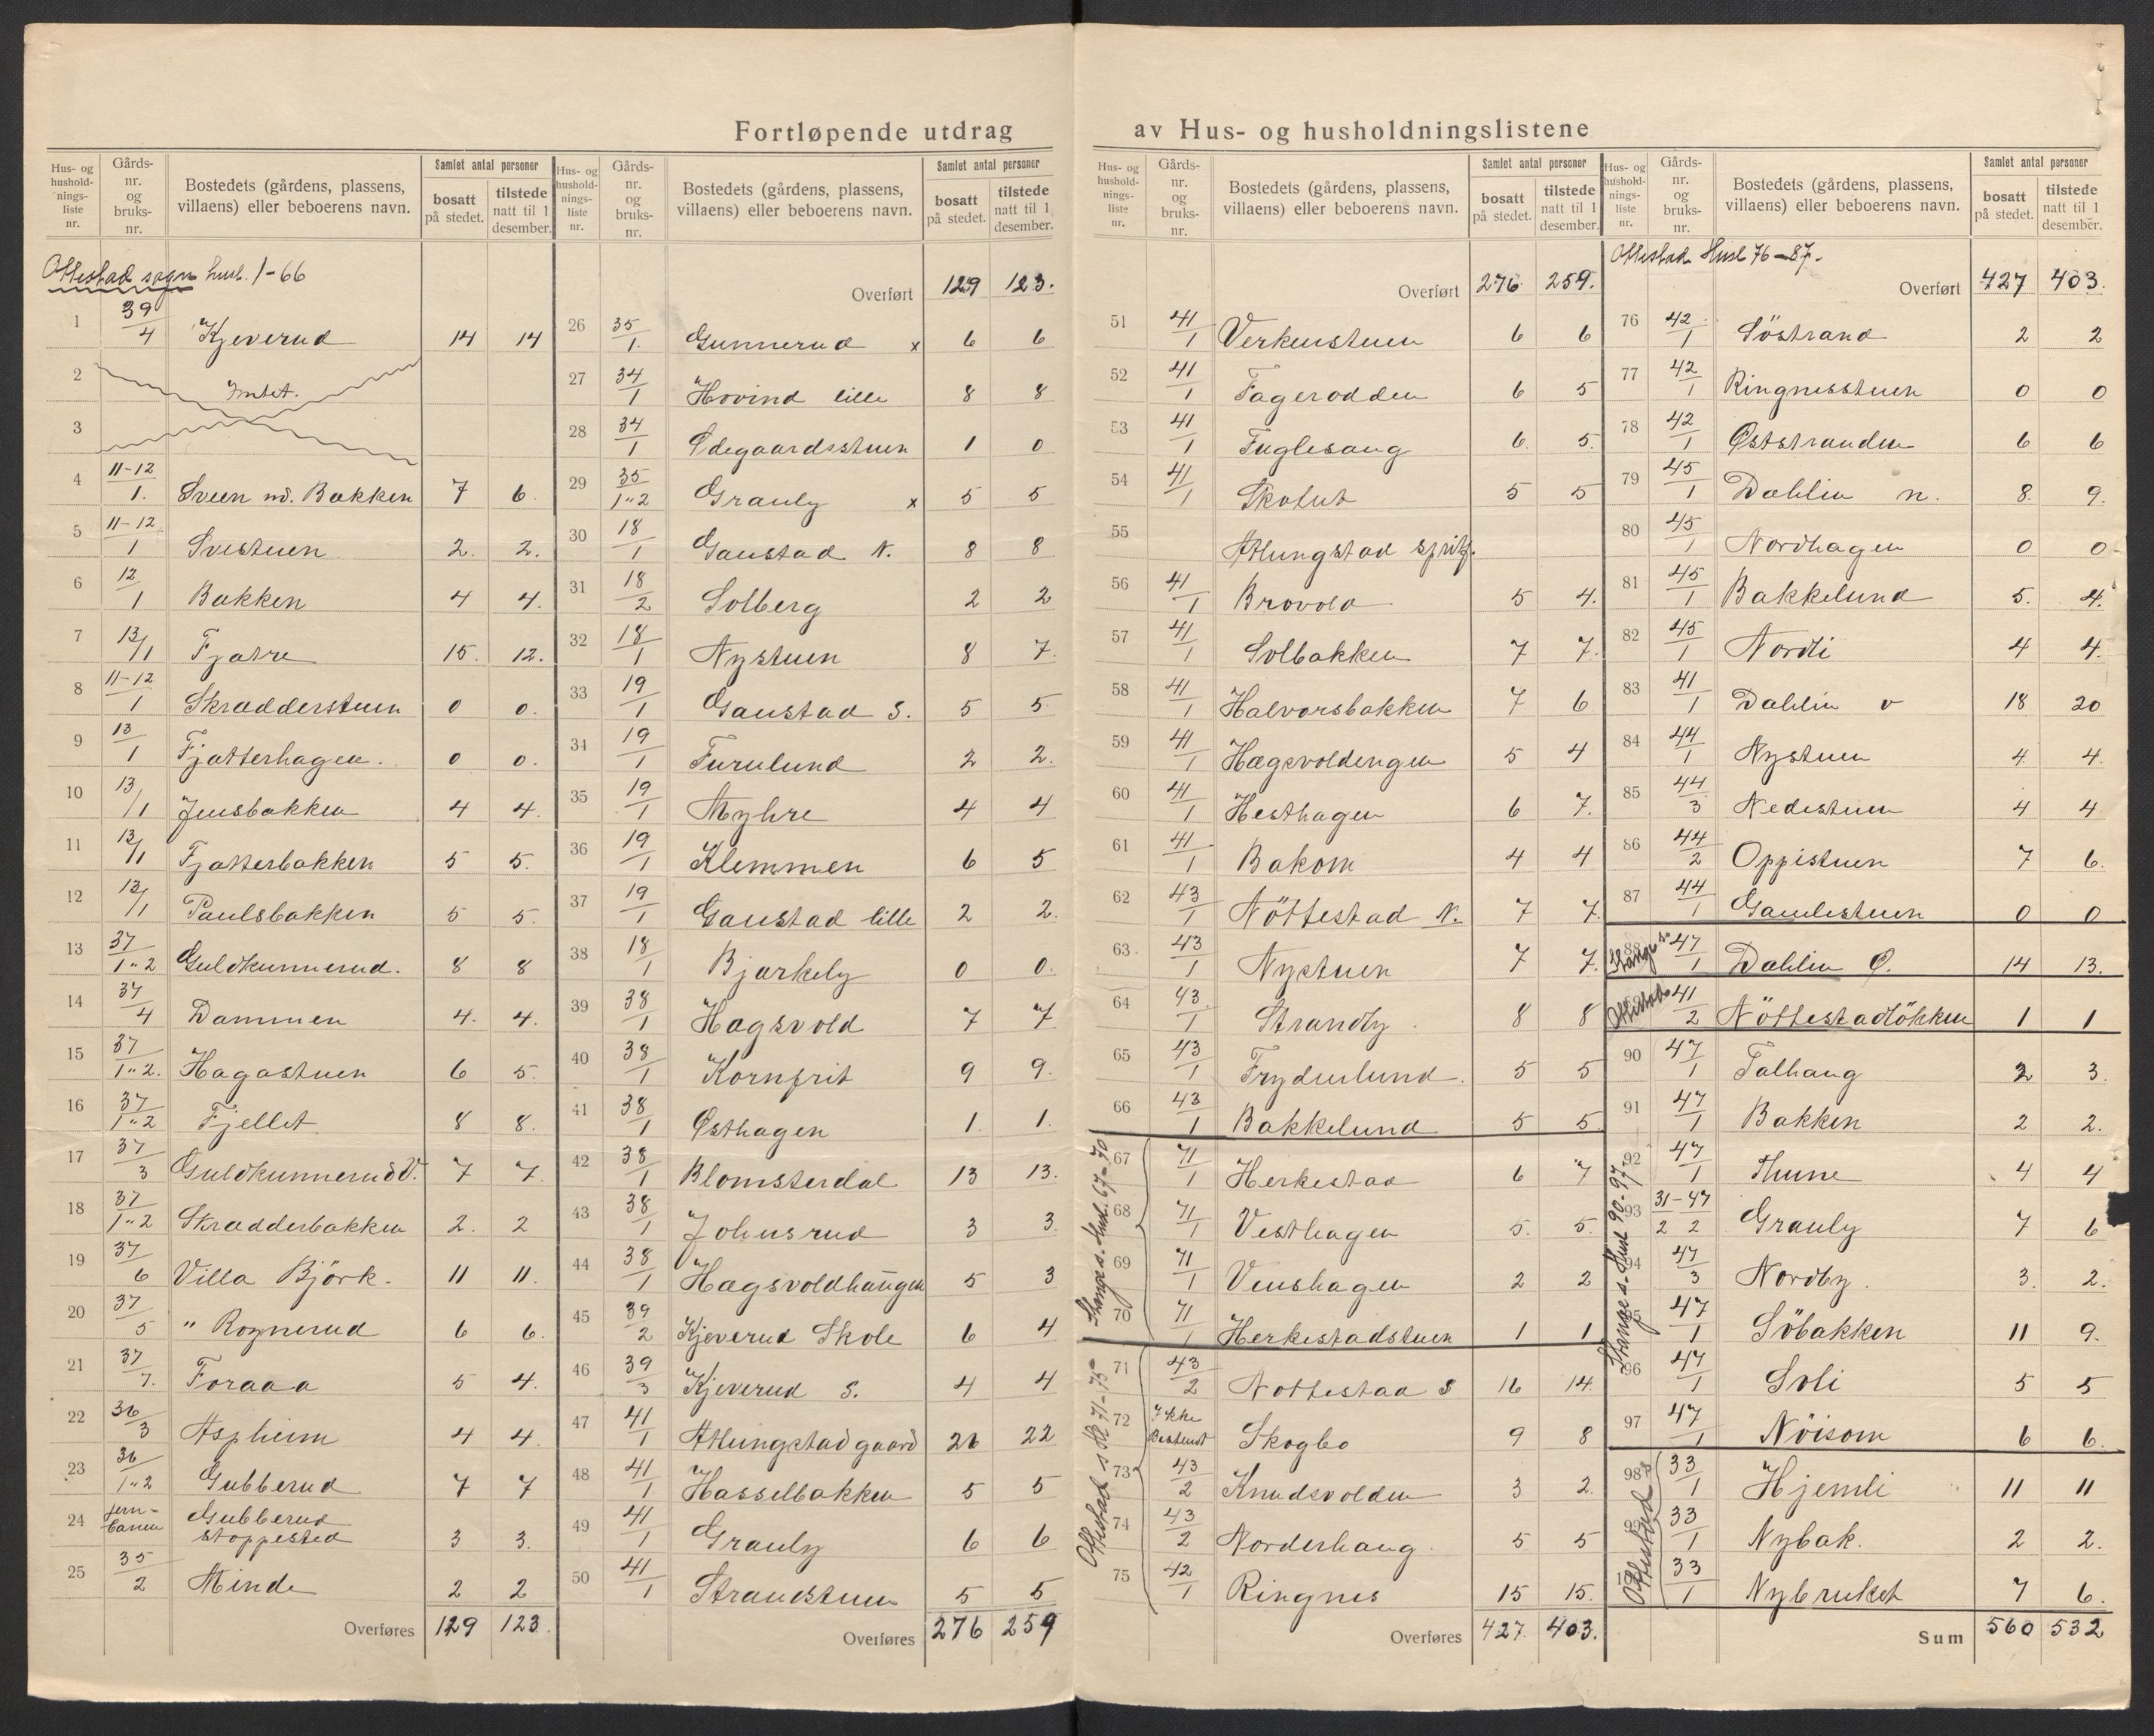 Fortløpende utdrag av Hus- og husholdningslistene
Hus- og hushold-nings-liste nr. | Gårds-nr. og bruks-nr. | Bostedets (gårdens, plassens, villaens) eller beboerens navn. | Samlet antal personer | bosatt på stedet. | tilstede natt til 1 desember.
Ottestad sogn husl. 1-66
1 39/4 Kjeverud 14 14
2 Intet.
3
4 11-12/1. Sveen m. Bakken 7 6
5 11-12/1 Svestuen 2. 2.
6 12/1 Bakken 4 4.
7 13/1 Fjatre 15. 12.
8 11-12/1 Skrædderstuen 0 0.
9 13/1 Fjatterhagen. 0 0.
10 13/1 Jensbakken 4 4.
11 13/1 Fjatterbakken 5 5.
12 13/1 Paulsbakken 5 5.
13 37/1"2 Guldkunnerud. 8 8
14 37/4 Dammen 4. 4.
15 37/1"2. Hagastuen 6 5.
16 37/1"2 Fjellet 8 8.
17 37/3 Guldkunnerud V. 7 7
18 37/1"2 Skrædderbakken 2. 2
19 37/6 Villa Björk. 11 11.
20 37/5 " Rognerud 6 6.
21 37/7. Foraaa 5 4.
22 36/3 Aspheim 4 4.
23 36/1"2 Gubberud 7 7
24 Jern-banen Gubberud stoppested 3 3.
25 35/2 Minde 2 2
Overføres 129 123.
Hus- og hushold-nings-liste nr. | Gårds-nr. og bruks-nr. | Bostedets (gårdens, plassens, villaens) eller beboerens navn. | Samlet antal personer | bosatt på stedet. | tilstede natt til 1 desember.
Overført 129 123.
26 35/1. Gunnerud x 6 6
27 34/1 Hovind lille 8 8
28 34/1 Ødegaardsstuen 1 0
29 35/1"2 Granly x 5 5
30 18/1 Gaustad N. 8 8
31 18/2 Solberg 2 2
32 18/1 Nystuen 8 7.
33 19/1 Gaustad S. 5 5
34 19/1 Furulund 2 2.
35 19/1 Myhre 4 4
36 19/1 Klemmen 6 5
37 19/1 Gaustad lille 2 2.
38 18/1 Bjarkely 0 0.
39 38/1 Hagsvold 7 7
40 38/1 Kornfrit 9 9.
41 38/1 Østhagen 1. 1.
42 38/1 Blomsterdal 13 13.
43 38/1 Johnsrud 3 3.
44 38/1 Hagsvoldhaugen 5 3
45 39/2 Kjeverud Skole 6 4
46 39/3 Kjeverud S. 4 4
47 41/1 Atlungstad gaard 26 22
48 41/1 Hasselbakken 5 5
49 41/1 Granly 6 6
50 41/1 Strandstuen 5 5
Overføres 276 259
Hus- og hushold-nings-liste nr. | Gårds-nr. og bruks-nr. | Bostedets (gårdens, plassens, villaens) eller beboerens navn. | Samlet antal personer | bosatt på stedet. | tilstede natt til 1 desember.
Overført 276 259.
51 41/1 Verkenstuen 6 6
52 41/1 Fagerodden 6 5
53 41/1 Fuglesang 6. 5.
54 41/1 Skolut 5 5
55 Atlungstad spritf.
56 41/1 Brovold 5 4.
57 41/1 Solbakken 7 7.
58 41/1 Halvorsbakken 7 6
59 41/1 Hægsvoldengen 5 4
60 41/1 Hesthagen 6 7.
61 41/1 Bakom 4 4
62 43/1 Nöttestad N. 7 7.
63. 43/1 Nystuen 7 7.
64 43/1 Strandby 8 8
65 43/1 Frydenlund. 5 5
66 43/1 Bakkelund 5 5.
Stange s. Husl. 67-70
67 71/1 Herkestad 6 7
68 71/1 Vesthagen 5. 5.
69 71/1 Venshagen 2 2
70 71/1 Herkestadstuen 1 1
Ottestad s Hl 71-75
71 43/2 Nottestad S 16 14
72 Ikke Bestemt Skogbo 9 8
73 43/2 Knudsvolden 3 2.
74 43/2 Norderhaug. 5 5
75 42/1 Ringnes 15 15.
Overføres 427. 403.
Hus- og hushold-nings-liste nr. | Gårds-nr. og bruks-nr. | Bostedets (gårdens, plassens, villaens) eller beboerens navn. | Samlet antal personer | bosatt på stedet. | tilstede natt til 1 desember.
Ottestad Husl 76-87.
Overført 427 403.
76 42/1 Söstrand 2 2
77 42/1 Ringnesstuen 0 0
78 42/1 Øststranden 6 6
79 45/1 Dahlin n. 8. 9.
80 45/1 Nordhagen 0 0
81 45/1 Bakkelund 5. 4.
82 45/1 Nordli 4 4.
83 41/1 Dahlin v 18 20
84 44/1 Nystuen 4 4.
85 44/3 Nedistuen 4 4
86 44/2 Oppistuen 7 6.
87 44/1 Gamlestuen 0 0
88 Stange s. 47/1 Dahlin Ø. 14 13.
Ottestad 41/2 Nöttestadlökken 1 1
Stange s. Husl 90-97
90 47/1 Talhaug 2 3.
91 47/1 Bakken 2 2.
92 47/1 Thune 4 4
93 31-47/2 2 Granly 7 6
94 47/3 Nordby. 3. 2.
95 47/1 Söbakken 11 9.
96 47/1 Soli 5 5
97 47/1 Nöisom 6 6.
Ottestad s
98 33/1 Hjemli 11 11
99 33/1 Nybak. 2 2.
33/1 Nybruket 7 6.
Sum 560 532